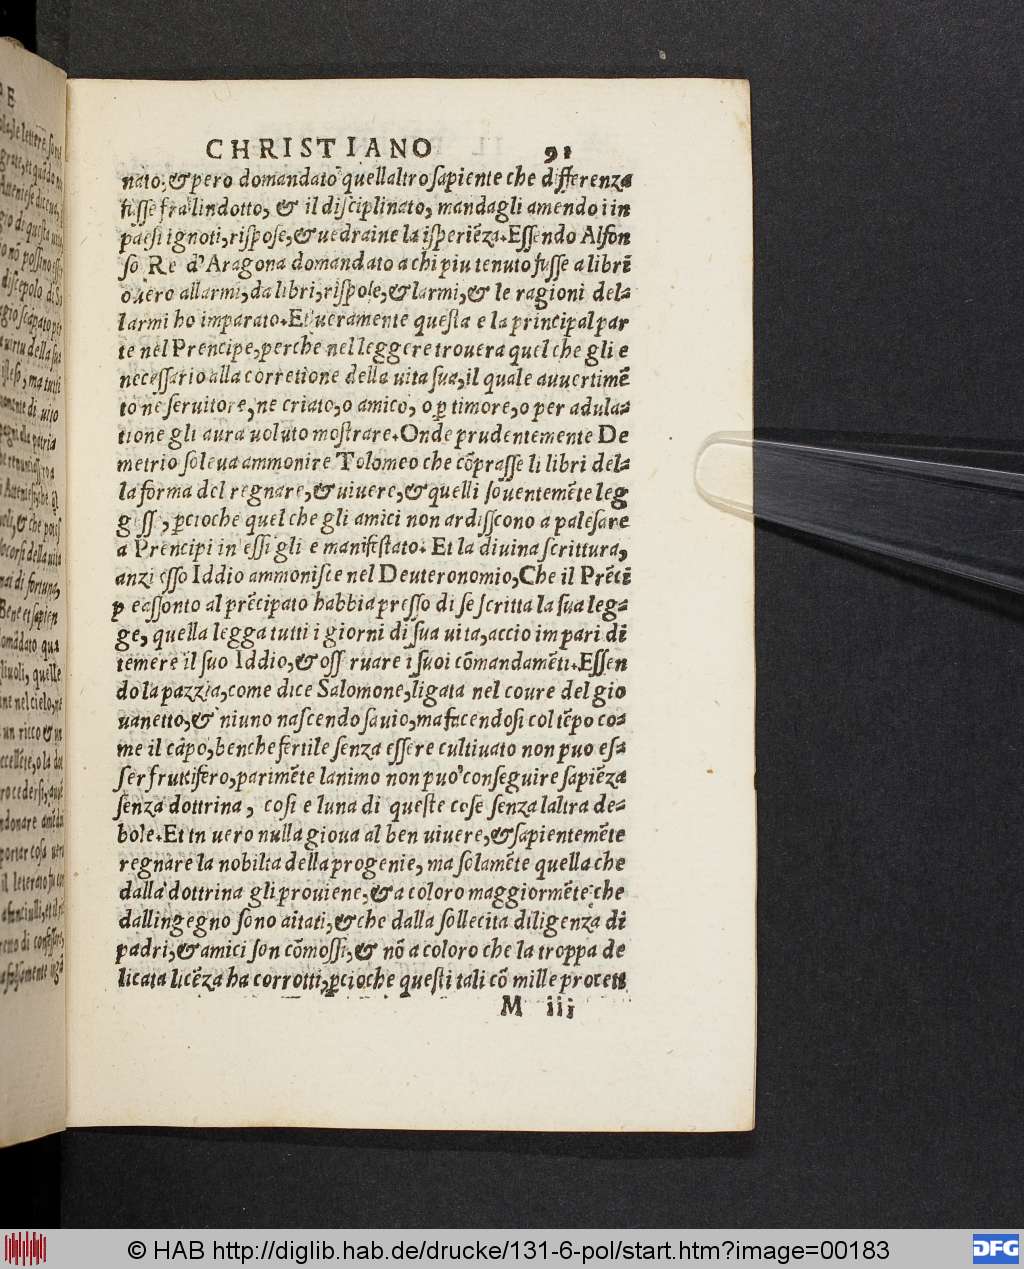 CHRISTIANO 91
nato, & pero domandato quellaltro sapiente che differenza
fusse fra lindotto, & il disciplinato, mandagli amendoi in
paesi ignoti, rispose, & uedraine la isperiẽza. Essendo Alfon
so Re d'Aragona domandato a chi piu tenuto fusse a librĩ
ouero allarmi, da libri, rispose, & larmi, & le ragioni del-
larmi ho imparato. Et ueramente questa e la principal par
te nel Prencipe, perche nel leggere trouera quel che gli e
necessario alla corretione della uita sua, il quale auuertimẽ
to ne seruitore, ne criato, o amico, o ꝑ timore, o per adula-
tione gli aura uoluto mostrare. Onde prudentemente De
metrio soleua ammonire Tolomeo che cõprasse li libri del-
la forma del regnare, & uiuere, & quelli souentemẽte leg
g ss , ꝑcioche quel che gli amici non ardiscono a palesare
a Prencipi in essi gli e manifestato. Et la diuina scrittura,
anzi esso Iddio ammonisce nel Deuteronomio, Che il Prẽcĩ
ꝑ eassonto al prẽcipato habbia presso di se scritta la sua leg-
ge, quella legga tutti i giorni di sua uita, accio impari di
temere il suo Iddio, & oss ruare i suoi cõmandamẽti. Essen
do la pazzia, come dice Salomone, ligata nel coure del gio
uanetto, & niuno nascendo sauio, ma facendosi col tẽpo co-
me il cãpo, benche fertile senza essere cultiuato non puo es-
ser fruttifero, parimẽte lanimo non puo conseguire sapiẽza
senza dottrina, cosi e luna di queste cose senza laltra de-
bole. Et in uero nulla gioua al ben uiuere, & sapientemẽte
regnare la nobilta della progenie, ma solamẽte quella che
dalla dottrina gli prouiene, & a coloro maggiormẽte che
dallingegno sono aitati, & che dalla sollecita diligenza di
padri, & amici son cõmossi, & nõ a coloro che la troppa de
licata licẽza ha corrotti, ꝑcioche questi tali cõ mille procett
M iii
© HAB http://diglib.hab.de/drucke/131-6-pol/start.htm?image=00183
DFG